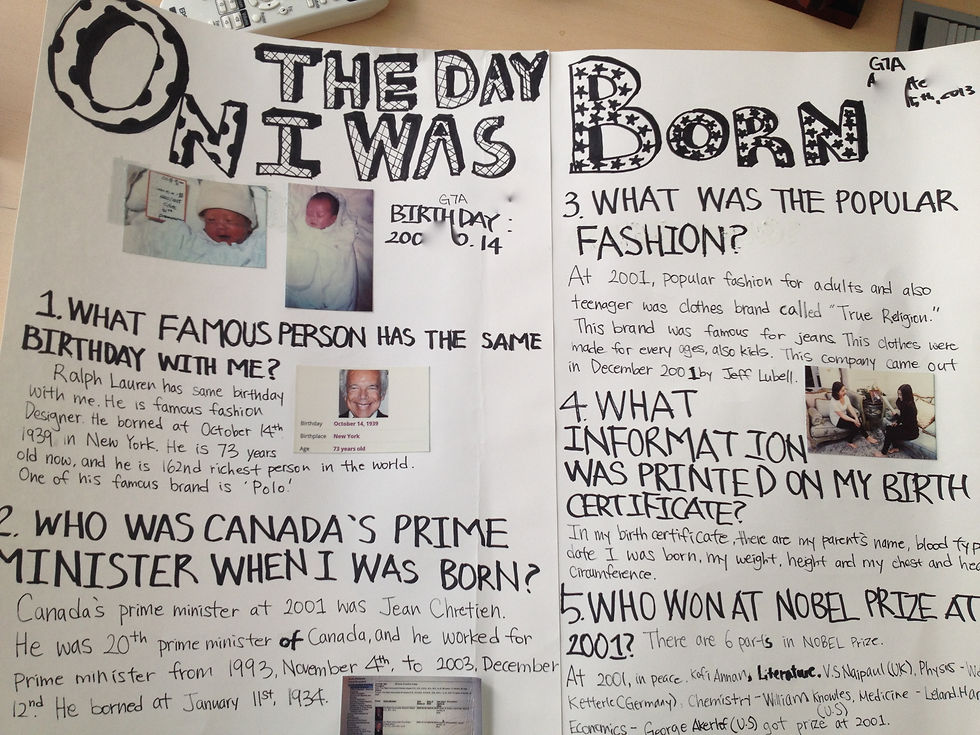 ON THE DAY
I WAS
BORN
G7A
BIRTHDAY:
14
1. WHAT FAMOUS PERSON HAS THE SAME
BIRTHDAY WITH ME?
Ralph Lauren has same birthday
with me. He is famous fashion
Designer. He borned at October 14th
1939 in New York. He is 73 years
old now, and he is 162nd richest person in the world.
One of his famous brand is 'Polo.'
Birthday October 14, 1939
Birthplace New York
Age 73 years old
2. WHO WAS CANADA`S PRIME
MINISTER WHEN I WAS BORN?
Canada's prime minister at 2001 was Jean Chretien.
He was 20th prime minister of Canada, and he worked for
Prime minister from 1993, November 4th, to 2003, December
12nd. He borned at January 11st, 1934.
G7A
A
5th, 2013
3. WHAT WAS THE POPULAR
FASHION?
At 2001, popular fashion for adults and also
teenager was clothes brand called "True Religion."
This brand was famous for jeans. This clothes were
made for every ages, also kids. This company came out
in December 2001 by Jeff Lubell.
4. WHAT
INFORMATION
WAS PRINTED ON MY BIRTH
CERTIFICATE?
In my birth certificate, there are my parent's name, blood typ
date I was born, my weight, height and my chest and hea
Circumference.
5. WHO WON AT NOBEL PRIZE AT
2001? There are 6 parts in NOBEL Prize.
At 2001, in peace, Kofi Annan, Literature, V.S Naipaul (UK), Physics -
Ketterle (Germany), Chemistry - William Knowles, Medicine - Leland. Har
(U.S)
Economics - George Akerlof (U.S) got prize at 2001.